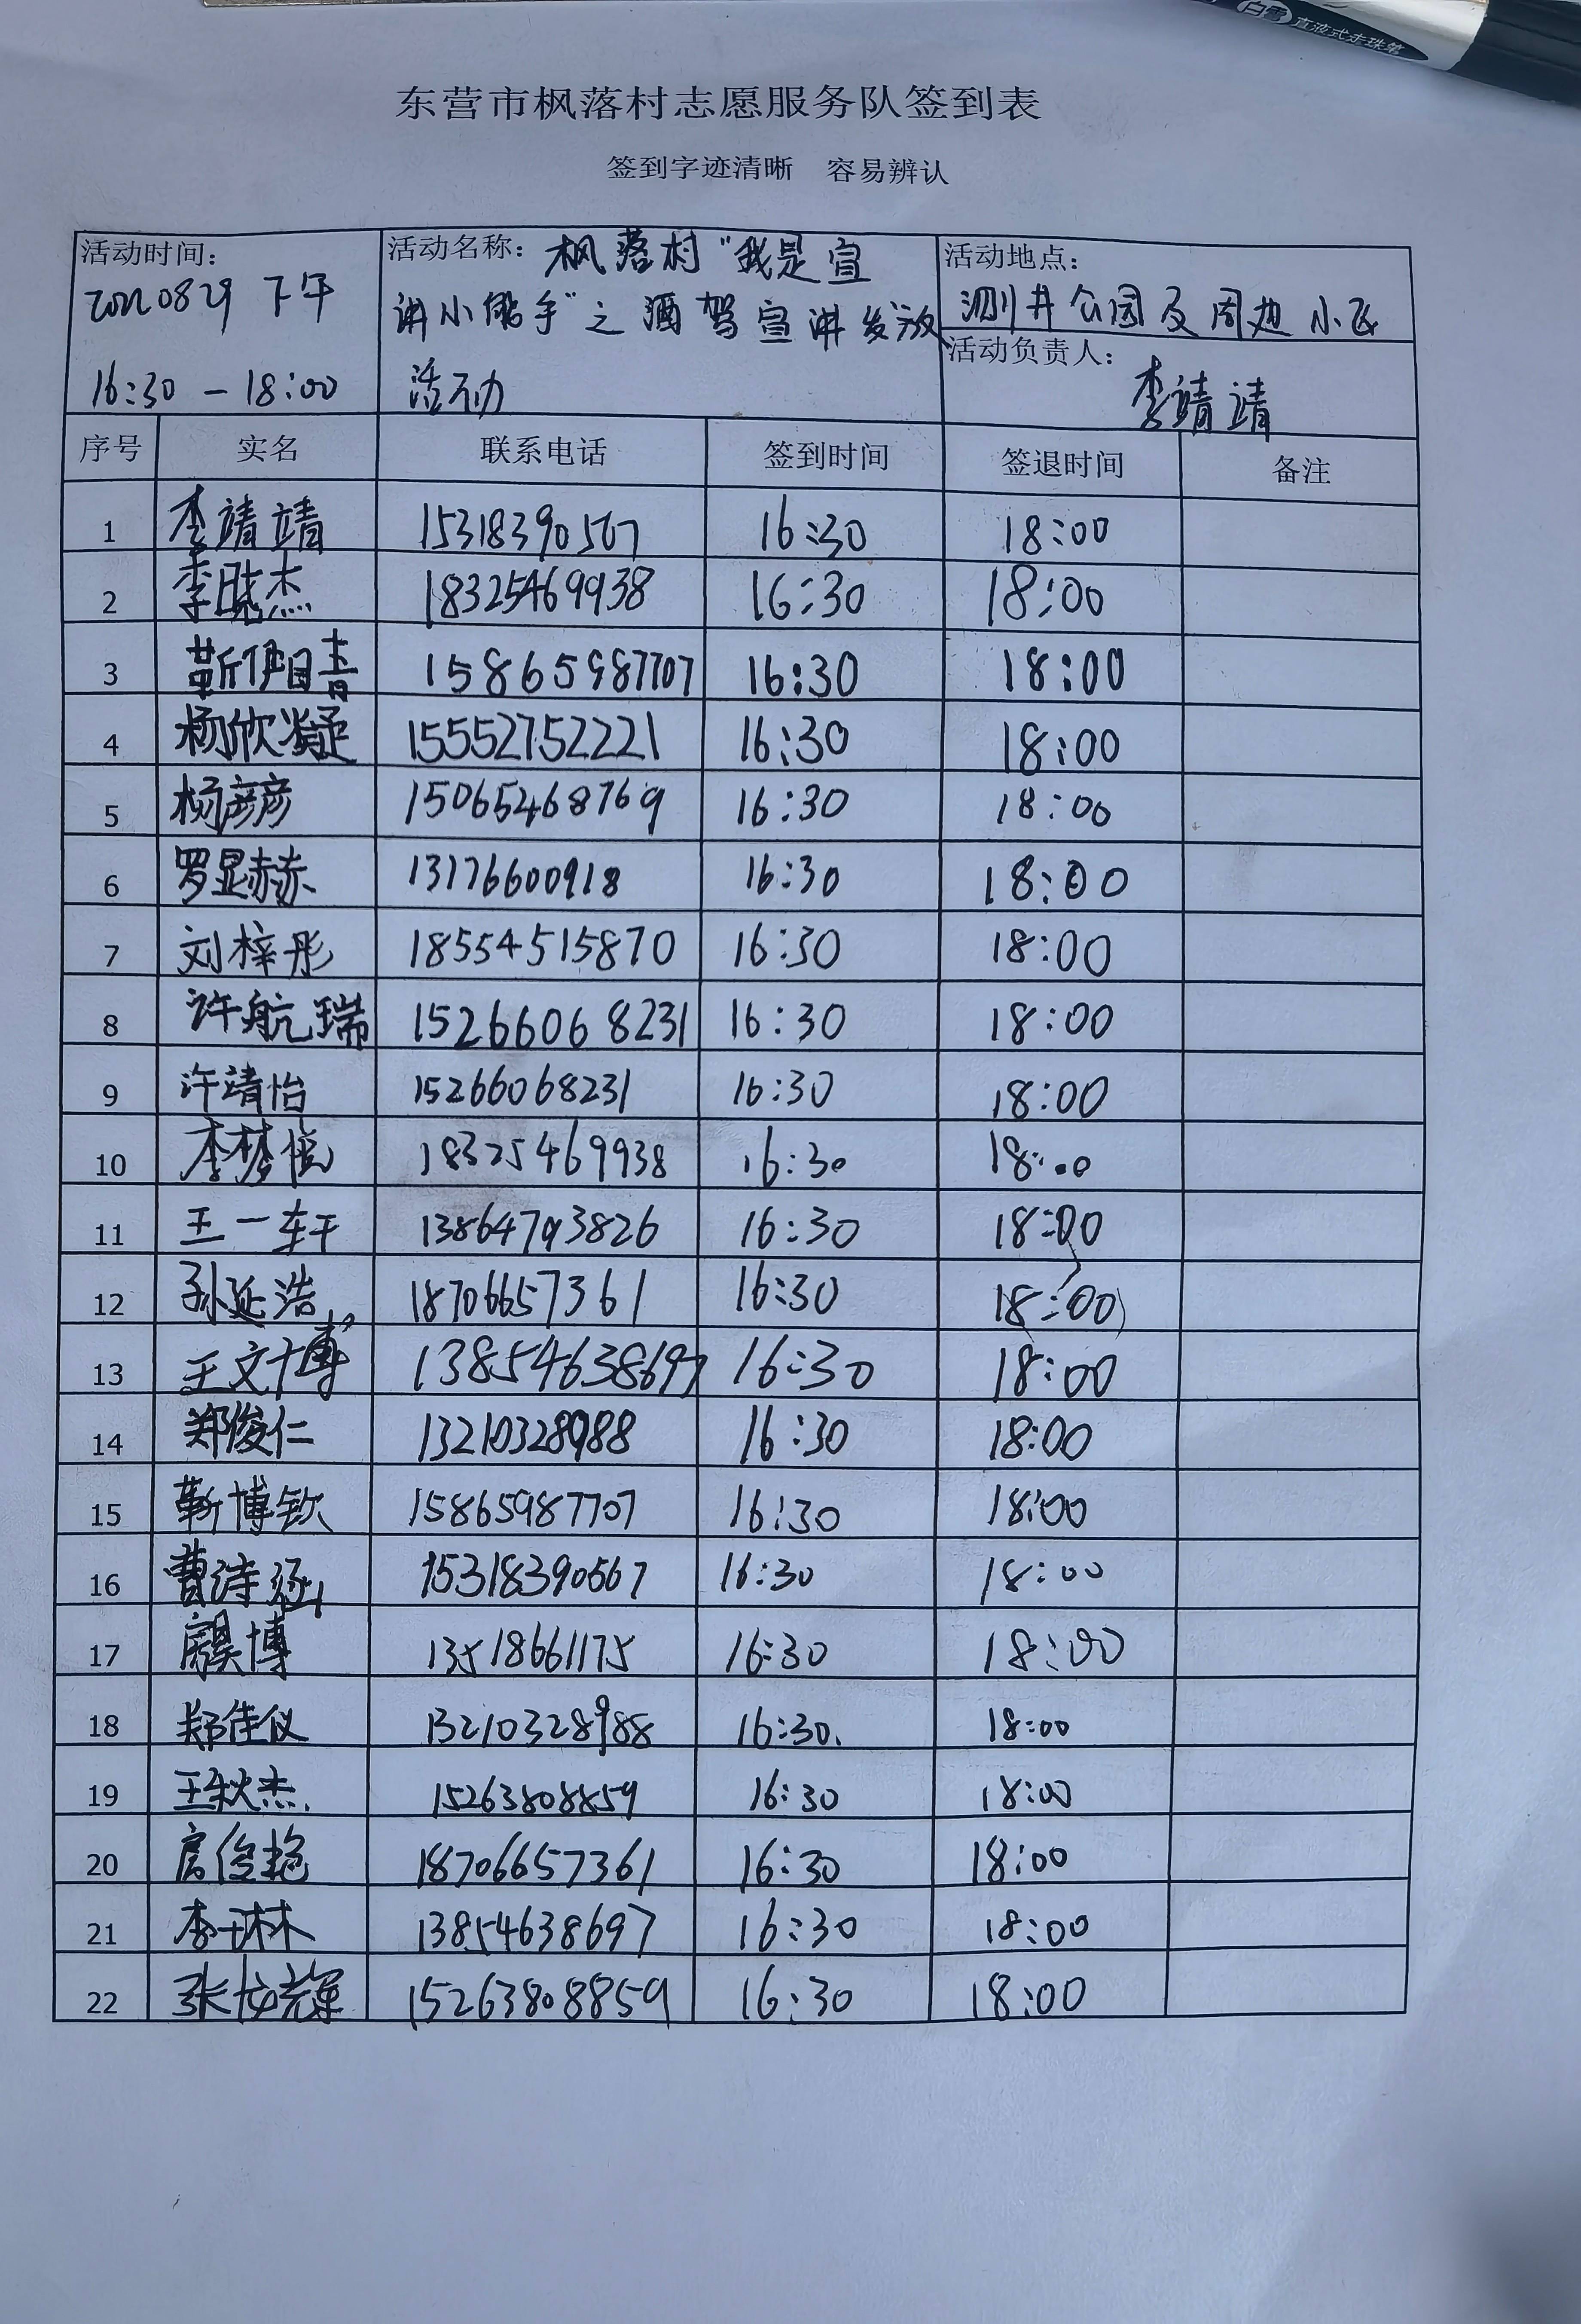 白雪 直液式走珠笔
东营市枫落村志愿服务队签到表
签到字迹清晰 容易辨认
活动时间: 活动名称: 枫落村“我是宣 活动地点:
20220829 下午 讲小能手”之酒驾宣讲发放 测井公园及周边小区
活动负责人:
16:30-18:00 活动 李靖靖
序号 实名 联系电话 签到时间 签退时间 备注
1 李靖靖 15318390567 16:30 18:00
2 李晓杰 18325469938 16:30 18:00
3 靳伊睛 15865987707 16:30 18:00
4 杨欣凝 15552752221 16:30 18:00
5 杨彦彦 15065468769 16:30 18:00
6 罗显赫 13176600918 16:30 18:00
7 刘梓彤 18554515870 16:30 18:00
8 许航瑞 15266068231 16:30 18:00
9 许靖怡 15266068231 16:30 18:00
10 李梦悦 18325469938 16:30 18:00
11 王一轩 13864793826 16:30 18:00
12 孙延浩 18706657361 16:30 18:00
13 王文博 13854638697 16:30 18:00
14 郑俊仁 13210328988 16:30 18:00
15 靳博钦 15865987707 16:30 18:00
16 曹诗涵 15318390567 16:30 18:00
17 博 13518661175 16:30 18:00
18 郑佳仪 13210328988 16:30 18:00
19 王秋杰 15263808859 16:30 18:00
20 房俊艳 18706657361 16:30 18:00
21 李琳 13854638697 16:30 18:00
22 张龙辉 15263808859 16:30 18:00